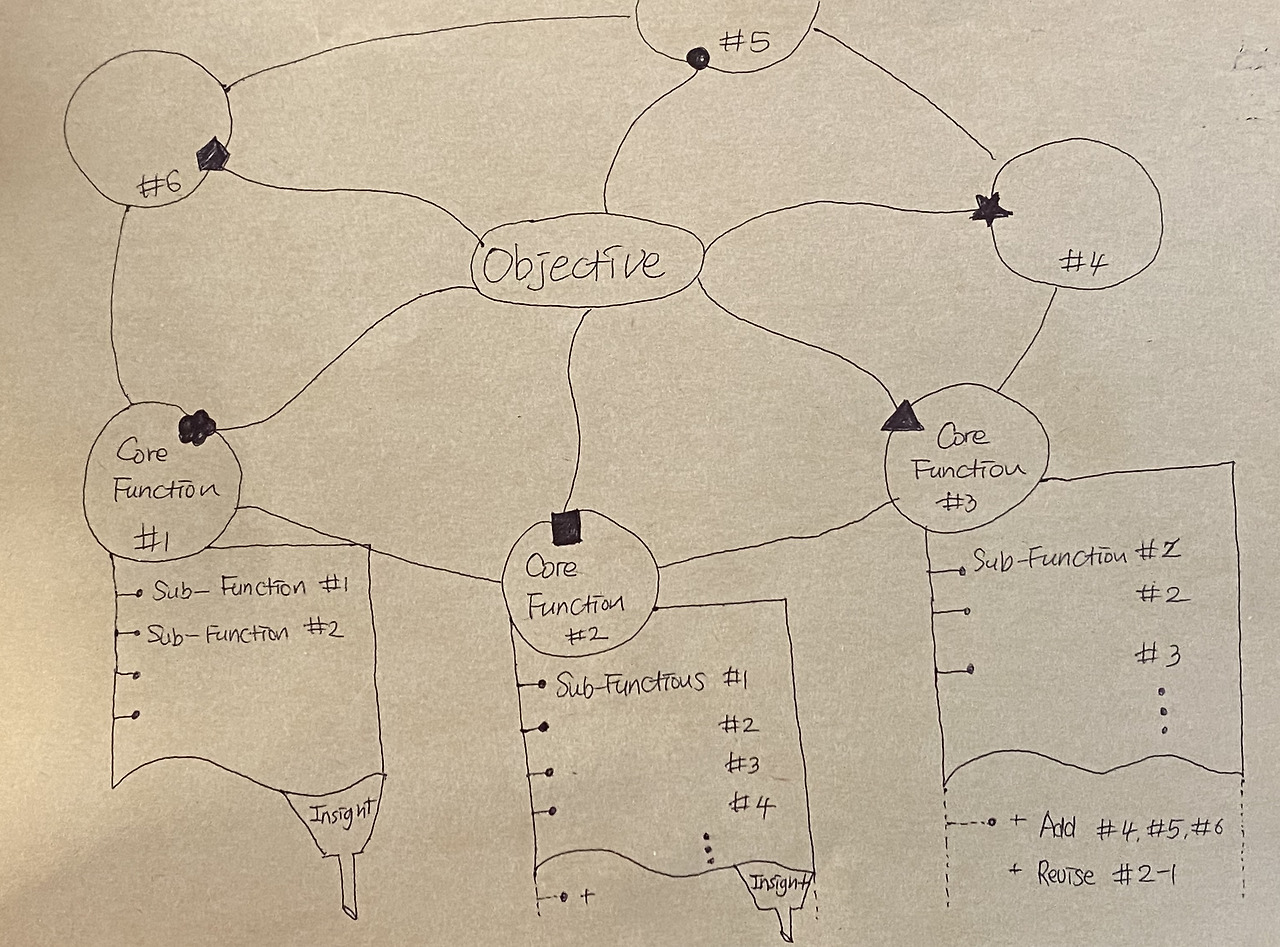 #5
#6
#4
Objective
Core
Function
#1
Core
Function
#2
Core
Function
#3
Sub-Function #1
Sub-Function #2
Insight
Sub-Functious #1
#2
#3
#4
Insight
+
Sub-Function #Z
#2
#3
+ Add #4, #5, #6
+ Revise #2-1